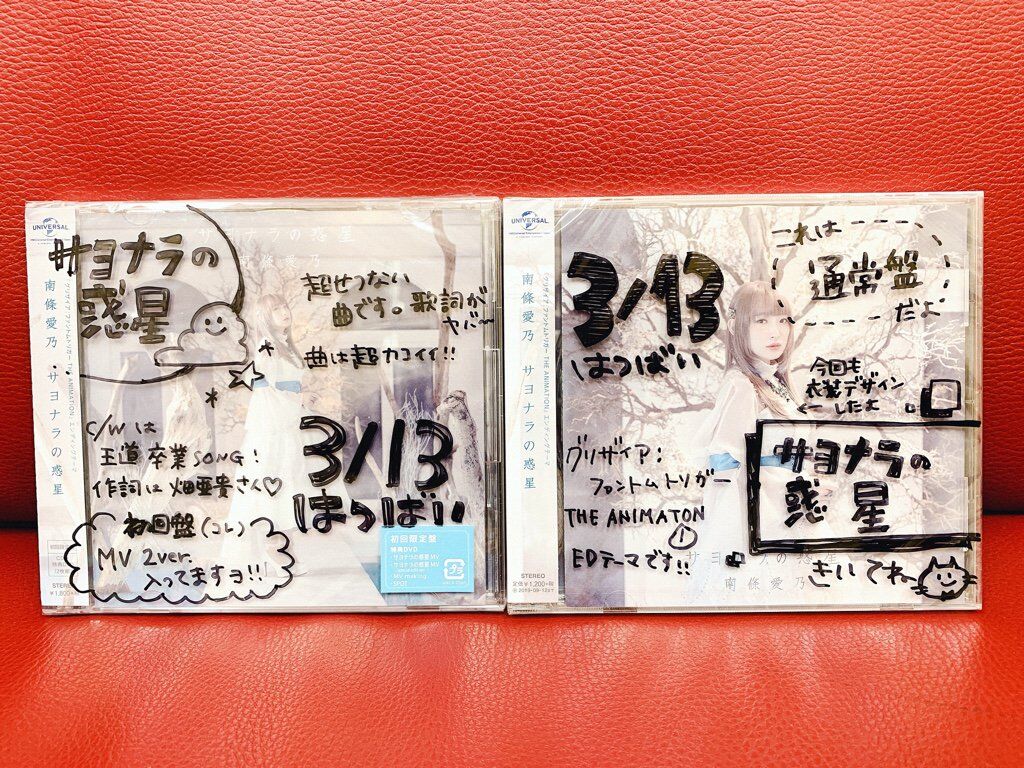 UNIVERSAL
南條愛乃 サヨナラの惑星
『グリザイア：ファントムトリガー THE ANIMATION』エンディングテーマ
サヨナラの惑星
南條愛乃
サヨナラの
惑星
超せつない
曲です。歌詞が
ヤバ〜
曲は超カコイイ!!
C/Wは
王道卒業SONG！
作詞は畑亜貴さん♡
3/13
はつばい
初回盤(コレ)
MV 2ver.
入ってますヨ!!
初回限定盤
特典DVD
・サヨナラの惑星 MV
・MV making
・SPOT
STEREO
UNIVERSAL
南條愛乃 サヨナラの惑星
『グリザイア：ファントムトリガー THE ANIMATION』エンディングテーマ
3/13
はつばい
これは
通常盤
だよ
今回も
衣装デザイン
←したよ
グリザイア：
ファントムトリガー
THE ANIMATON
①
EDテーマです!!
サヨナラの
惑星
きいてねー
サヨナラの惑星
南條愛乃
STEREO
定価 ¥1,200+税